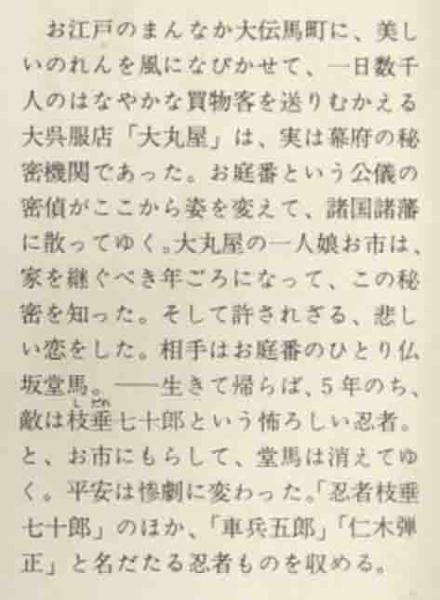 お江戸のまんなか大伝馬町に、美し
いのれんを風になびかせて、一日数千
人のはなやかな買物客を送りむかえる
大呉服店「大丸屋」は、実は幕府の秘
密機関であった。お庭番という公儀の
密偵がここから姿を変えて、諸国諸藩
に散ってゆく。大丸屋の一人娘お市は、
家を継ぐべき年ごろになって、この秘
密を知った。そして許されざる、悲し
い恋をした。相手はお庭番のひとり仏
坂堂馬。——生きて帰らば、5年のち、
敵は枝垂七十郎という怖ろしい忍者。
と、お市にもらして、堂馬は消えてゆ
く。平安は惨劇に変わった。「忍者枝垂
七十郎」のほか、「車兵五郎」「仁木弾
正」と名だたる忍者ものを収める。